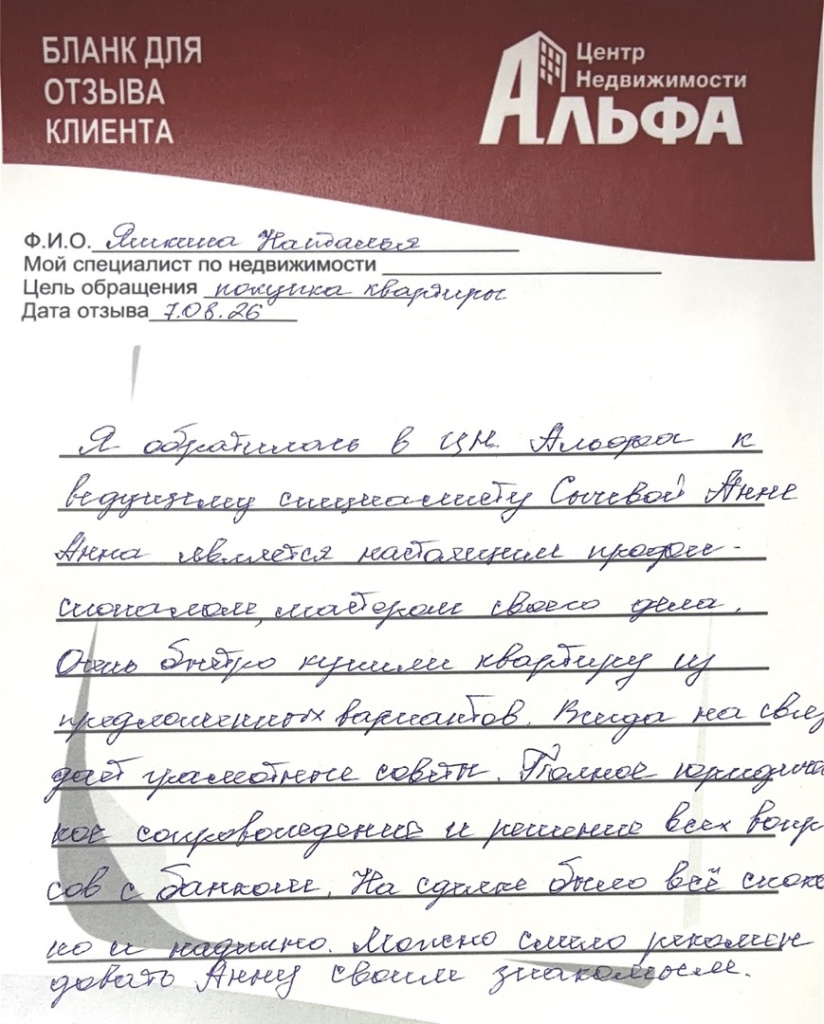 БЛАНК ДЛЯ
ОТЗЫВА
КЛИЕНТА
Центр
Недвижимости
АЛЬФА
Ф.И.О. Яшкина Наталья
Мой специалист по недвижимости
Цель обращения покупка квартиры
Дата отзыва 7.08.26
Я обратилась в ЦН. Альфа к
ведущему специалисту Сычевой Анне
Анна является настоящим профес-
сионалом, мастером своего дела.
Очень быстро купили квартиру из
предложенных вариантов. Всегда на связ
даёт грамотные советы. Полное юридичес
кое сопровождение и решение всех вопр
сов с банком. На сделке было всё споко
но и надежно. Можно смело рекомен
довать Анну своим знакомым.